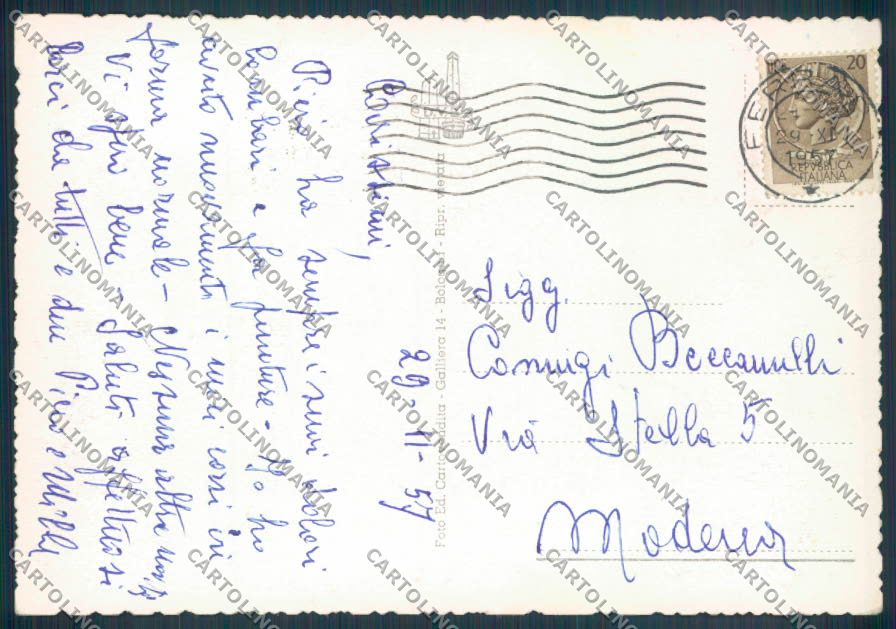 29-11-57
Carissimi,
Piero ha sempre i suoi dolori
lombari e fa punture - Io ho
avuto nuovamente i miei corsi in
forma normale - Nessuna altra novità
Vi spero bene - Saluti affettuosi
baci da tutti e due Piero e Milly
Foto Ed. Cartovendita - Galliera 14 - Bologna - Ripr. vietata
20
29 XI
1957
REPVBBLICA
ITALIANA
Sigg.
Coniugi Beccarelli
Via Stella 5
Modena
CARTOLINOMANIA